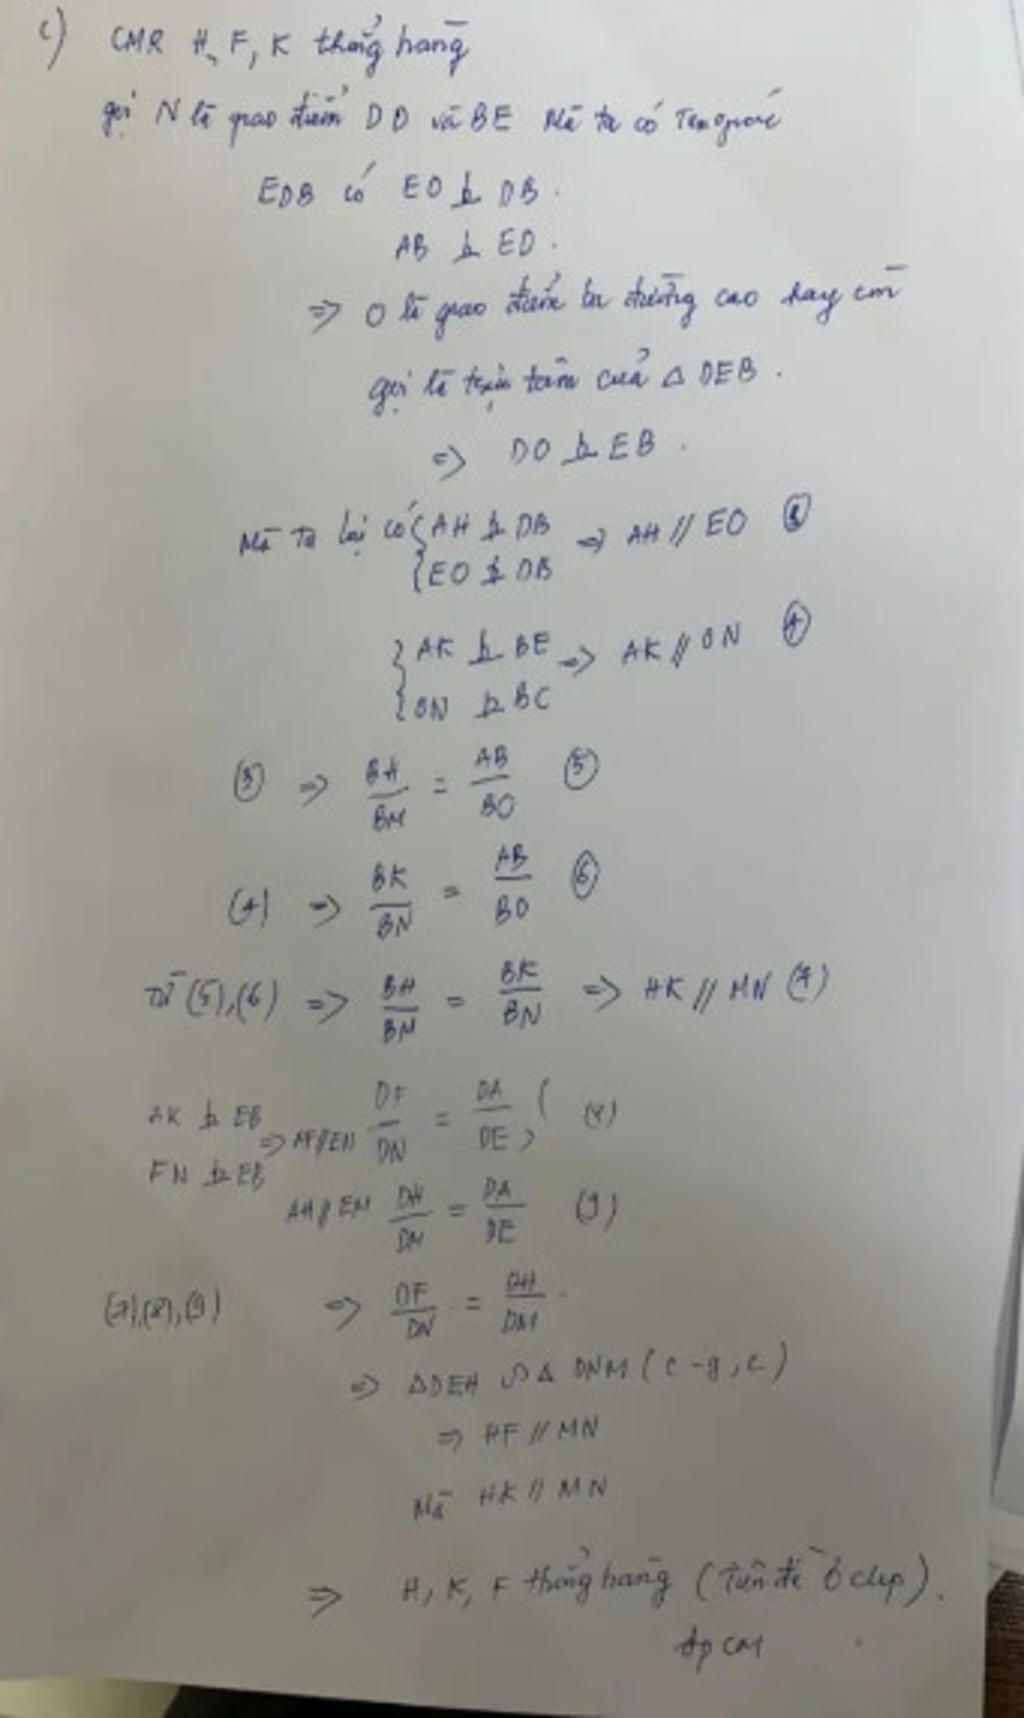 c) CMR H, F, K thẳng hàng
gọi N là giao điểm DO và BE Mà ta có Tam giác
EDB có EO ⊥ DB.
AB ⊥ ED.
=> O là giao điểm ba đường cao hay còn
gọi là trực tâm của △ DEB.
=> DO ⊥ EB.
Mà ta lại có { AH ⊥ DB => AH // EO ③
{ EO ⊥ DB
{ AK ⊥ BE => AK // ON ④
{ ON ⊥ BC
③ => BH/BM = AB/BO ⑤
(4) => BK/BN = AB/BO ⑥
Từ (5), (6) => BH/BM = BK/BN => HK // MN (7)
AK ⊥ EB => AF // EN DF/DN = DA/DE (8)
FN ⊥ EB
AH // EM DH/DM = DA/DE (9)
(7), (8), (9) => DF/DN = DH/DM.
=> △DEH ∽ △ DNM (c-g,c)
=> HF // MN
Mà HK // MN
=> H, K, F thẳng hàng (Tiên đề Ơclip).
đpcm